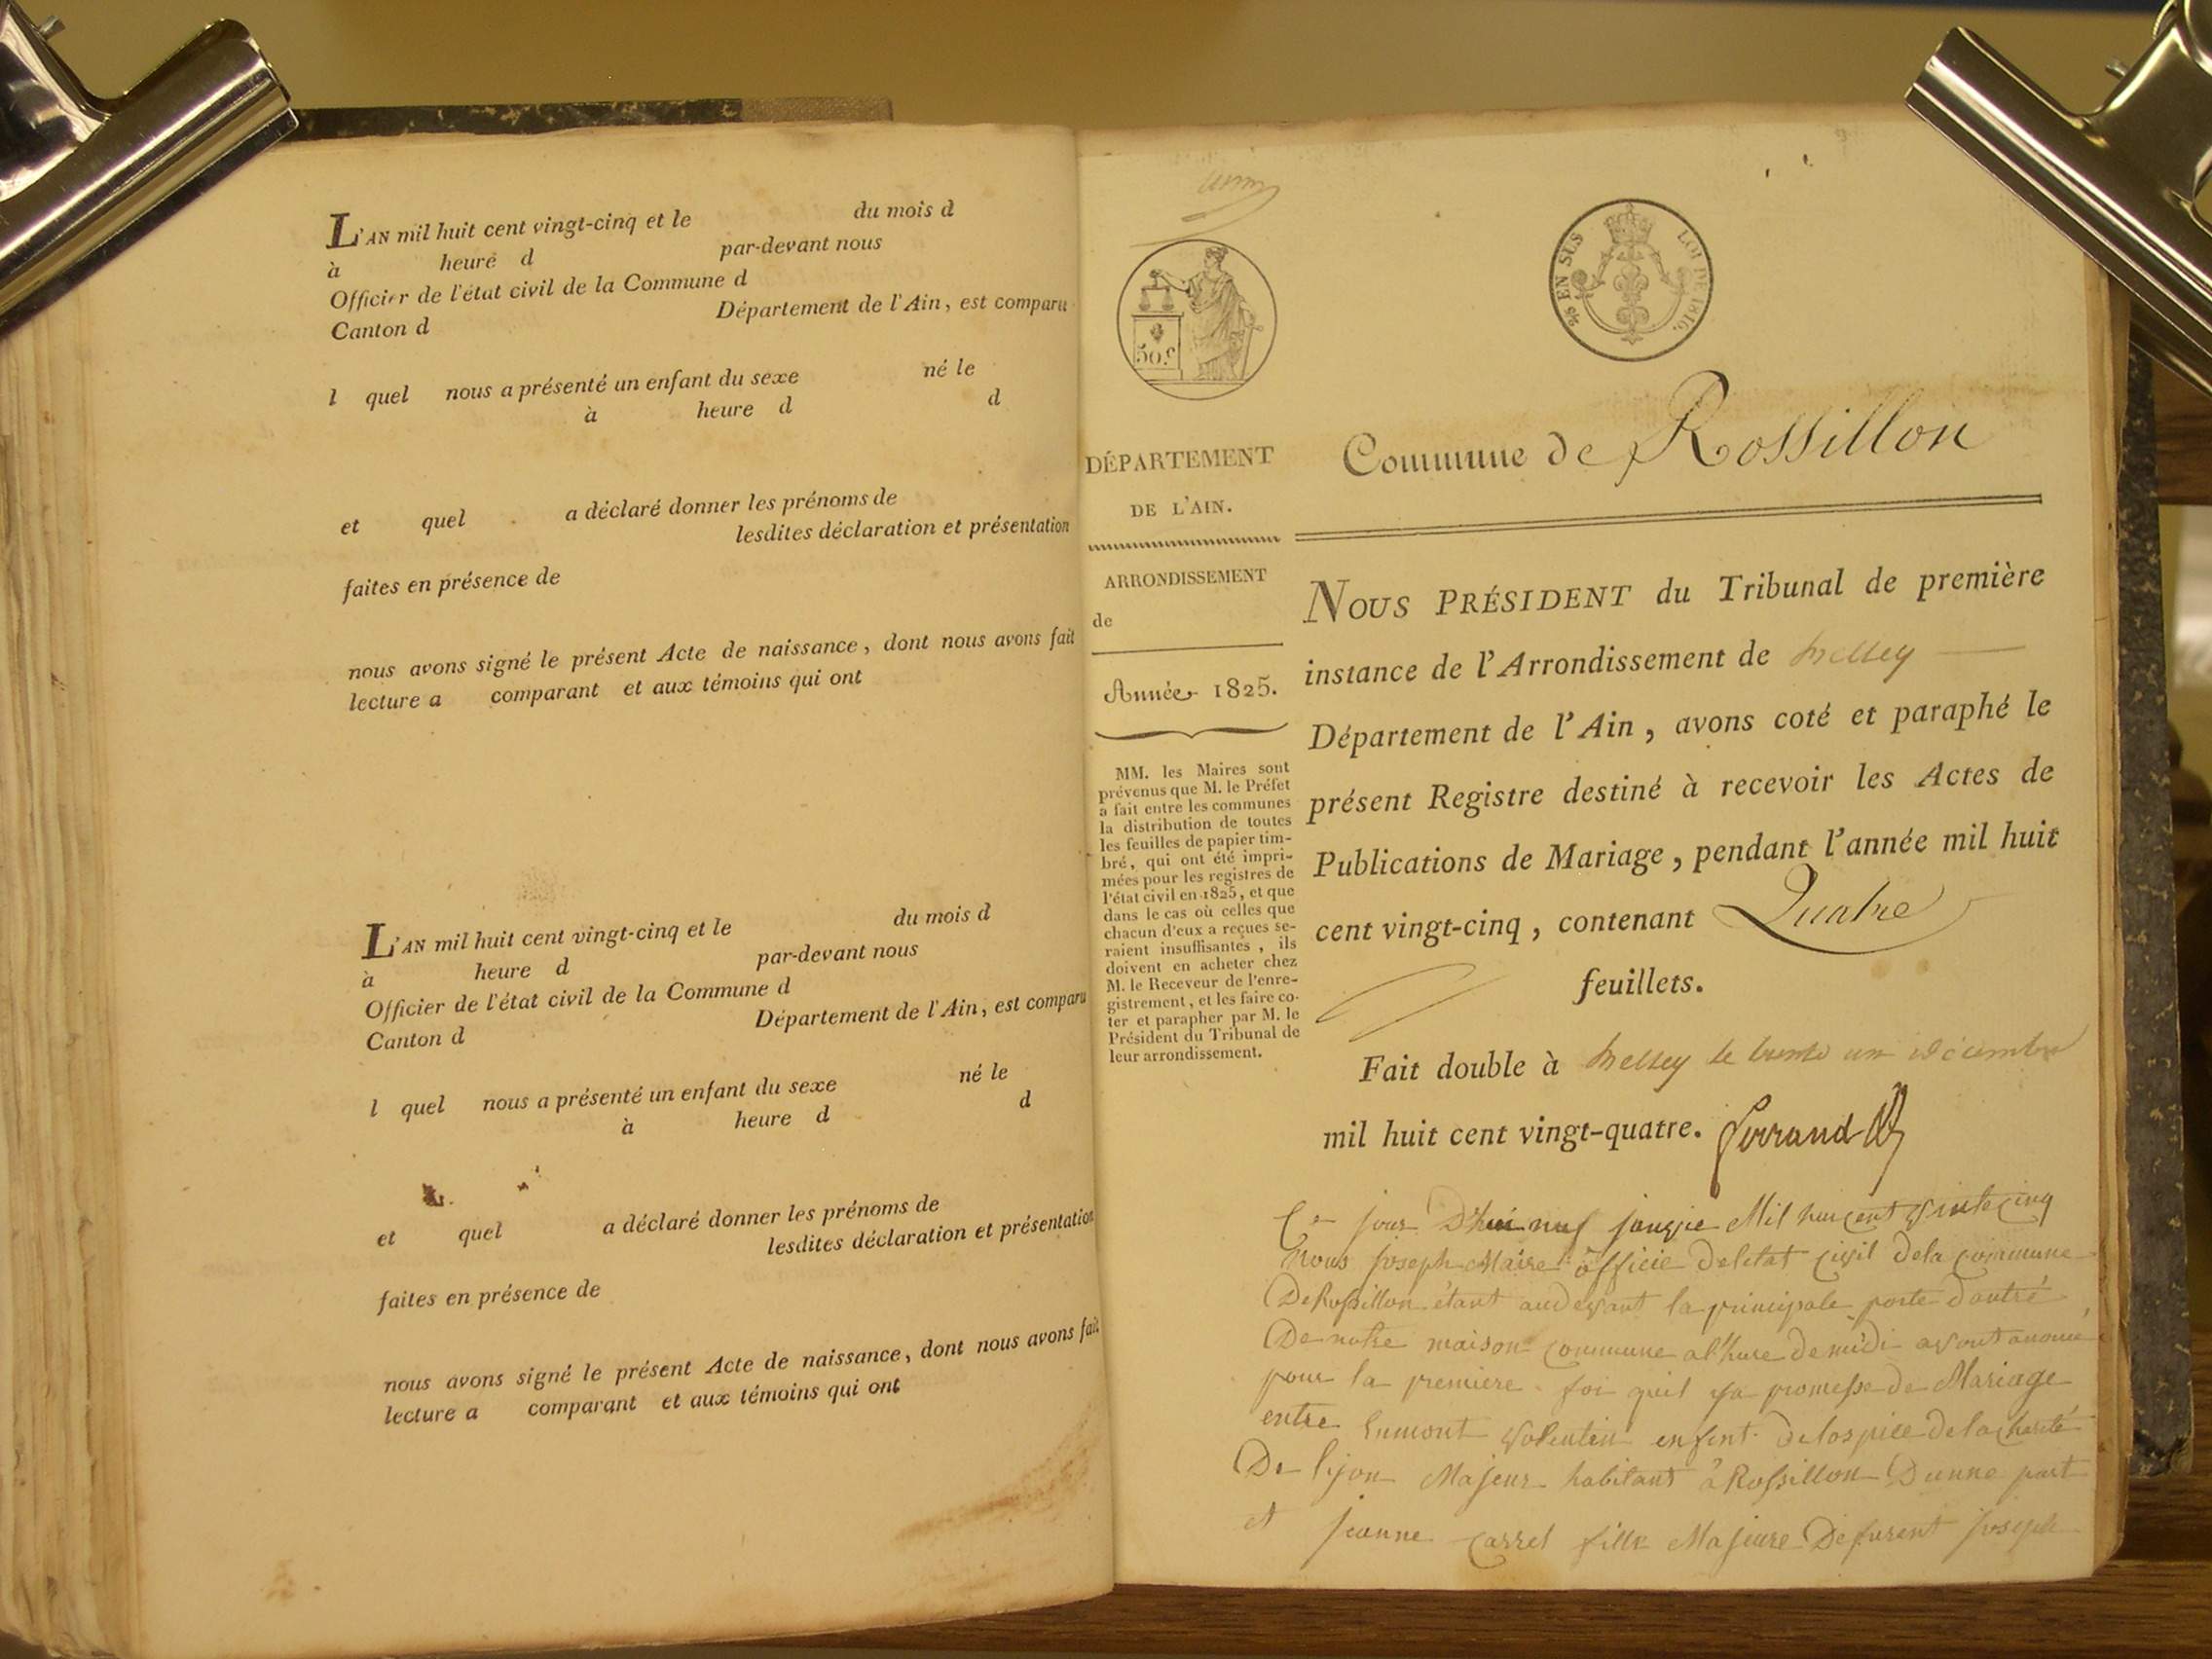 L'AN mil huit cent vingt-cinq et le du mois d
à heure d par-devant nous
Officier de l'état civil de la Commune d
Canton d Département de l'Ain, est comparu
l quel nous a présenté un enfant du sexe né le
à heure d d
et quel a déclaré donner les prénoms de
lesdites déclaration et présentation
faites en présence de
nous avons signé le présent Acte de naissance, dont nous avons fait
lecture a comparant et aux témoins qui ont
L'AN mil huit cent vingt-cinq et le du mois d
à heure d par-devant nous
Officier de l'état civil de la Commune d
Canton d Département de l'Ain, est comparu
l quel nous a présenté un enfant du sexe né le
à heure d d
et quel a déclaré donner les prénoms de
lesdites déclaration et présentation
faites en présence de
nous avons signé le présent Acte de naissance, dont nous avons fait
lecture a comparant et aux témoins qui ont
50 c
EN SUS LOI DE 1816.
DÉPARTEMENT
DE L'AIN.
ARRONDISSEMENT
de
Année 1825.
MM. les Maires sont
prévenus que M. le Préfet
a fait entre les communes
la distribution de toutes
les feuilles de papier tim-
bré, qui ont été impri-
mées pour les registres de
l'état civil en 1825, et que
dans le cas où celles que
chacun d'eux a reçues se-
raient insuffisantes, ils
doivent en acheter chez
M. le Receveur de l'enre-
gistrement, et les faire co-
ter et parapher par M. le
Président du Tribunal de
leur arrondissement.
Commune de Rossillon
NOUS PRÉSIDENT du Tribunal de première
instance de l'Arrondissement de Belley
Département de l'Ain, avons coté et paraphé le
présent Registre destiné à recevoir les Actes de
Publications de Mariage, pendant l'année mil huit
cent vingt-cinq, contenant Quatre
feuillets.
Fait double à Belley le trente un décembre
mil huit cent vingt-quatre.
Ce jour D'hui neuf janvie Mil huit cent vintecinq
Nous Joseph Maire officie deletat civil dela commune
De Rossillon étant au devant la principale porte dantré
De notre maison commune al'hure de midi avont anoncé
pour la premiere foi quil ya promesse de Mariage
entre Valentin enfent delospice dela charité
De lijon Majeur habitant à Rossillon Dunne part
et jeanne Carrel fille Majeure Defurent joseph